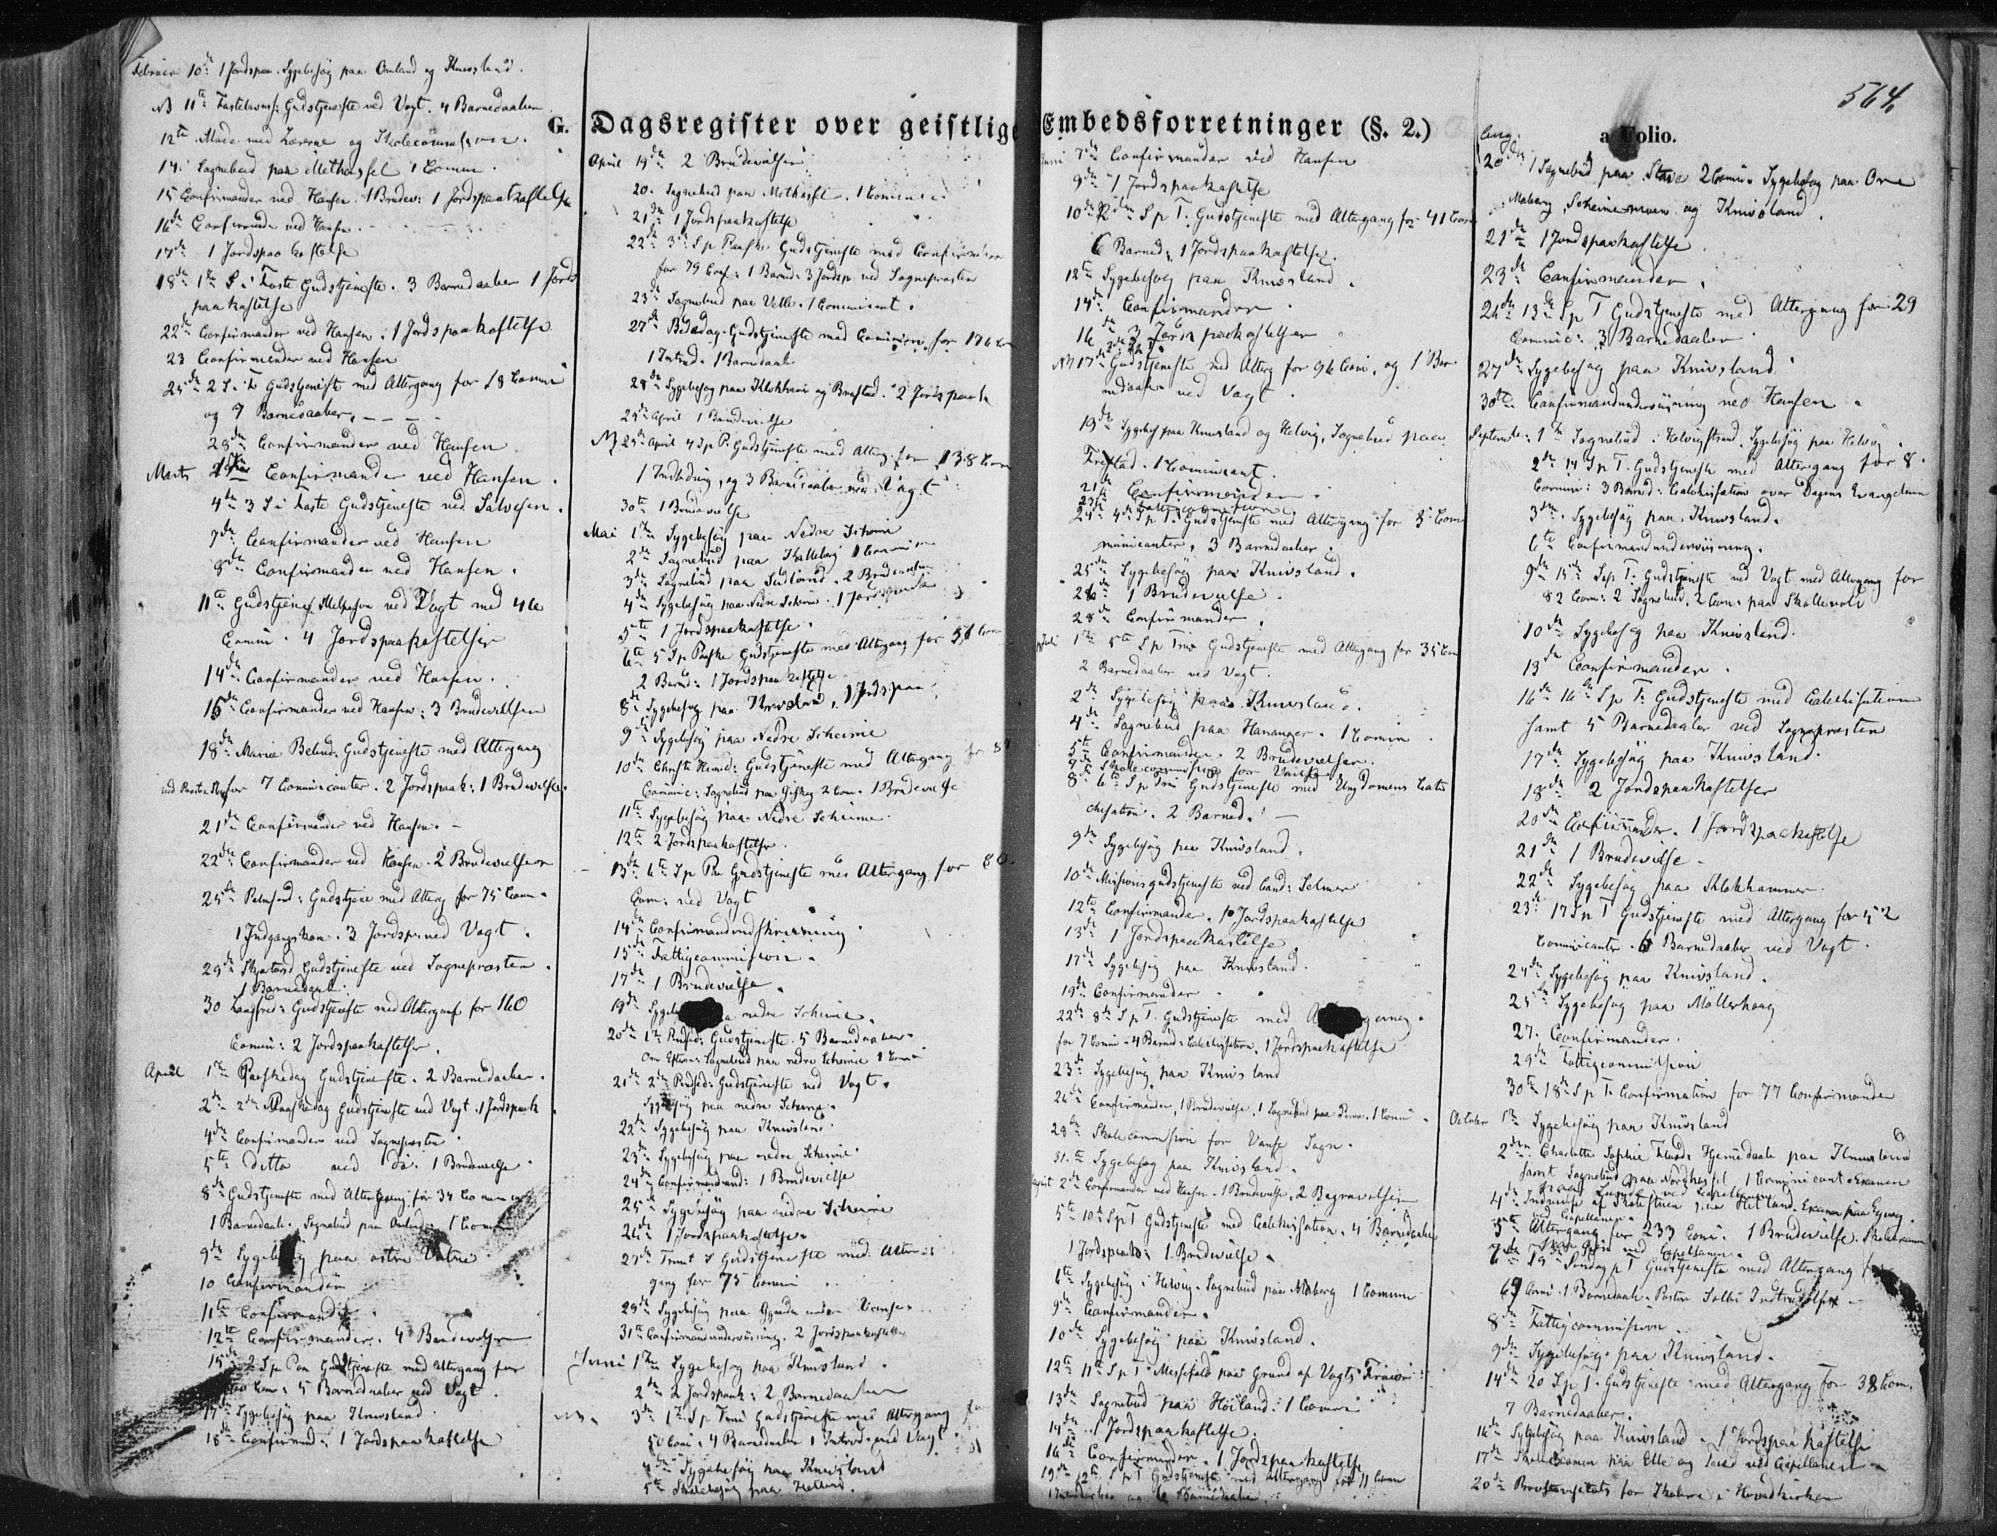 564
G. Dagsregister over geistlige Embedsforretninger (§. 2.) a Folio.
Februar 10de 1 Jordspaa. Sygebesøg paa Omland og Knivsland.
11te Fastelavns: Gudstjeneste ved Vogt. 4 Barnedaaber
12te Møde med Lærerne og Skolecommission.
14. Sognebud paa Methassel 1 Commun.
15 Confirmander ved Hansen. 1 Brudev: 1 Jordspaakastelse
16de Confirmander ved Hansen.
17de 1 Jordspaakastelse
18de 1ste S. i Faste Gudstjeneste. 3 Barnedaaber 1 Jords
paakastelse
22de Confirmander ved Hansen. 1 Jordspaakastelse
23 Confirmander ved Hansen
25de 2 S. i F. Gudstjeneste med Altergang for 18 Commu
og 7 Barnedaaber.
28de Confirmander ved Hansen
Marts 1ste Confirmander ved Hansen.
4de 3 S i Faste Gudstjeneste ved Salvesen.
7de Confirmander ved Hansen
8de Confirmander ved Hansen.
11te Gudstjeneste ved Vogt med
Commu. 4 Jordspaakastelser
14de Confirmander ved Hansen.
15de Confirmander ved Hansen: 3 Brudevielser
18de Mariæ Bebud: Gudstjeneste med Altergang
for 7 Communicanter. 2 Jordspaak: 1 Brudevielse.
21de Confirmander ved Hansen.
22de Confirmander ved Hansen. 2 Brudevielser
25de Palmesønd: Gudstjene med Alterg for 75 Com.
1 Indgangskone. 3 Jordsp: ved Vogt.
29de Skjærtorsd Gudstjeneste ved Sognepræsten.
1 Barnedaab.
30 Langfred: Gudstjeneste med Altergang for 160
Commu: 2 Jordspaakastelser.
April 1ste Paaskedag Gudstjeneste. 2 Barnedaaber.
2de 2den Paaskedag Gudstjeneste ved Vogt. 1 Jordspaak
4de Confirmander ved Sognepræsten.
5te ditto ved do: 1 Brudevielse.
8de Gudstjeneste med Altergang for 34
1 Barnedaab. Sognebud paa 1 Commu
9de Sygebesøg paa østre Vatne
10 Confirmander
11te Confirmander
12te Confirmander. 4 Brudevielser
15de 2 Sp Paa Gudstjeneste med Altergang for
Com: 5 Barnedaaber ved Vogt.
17de Sygebesøg paa Knivsland.
18de Confirmand: 1 Jordspaakastelse
April 19de 2 Brudevielser
20. Sognebud paa Methassel. 1 Commu
21de 1 Jordspaakastelse
22de 3die S p Paaske Gudstjeneste med Confirmation
for 79 Conf: 1 Barned: 3 Jordsp ved Sognepræsten
23de Sognebud paa Velle. 1 Communicant.
27de Bededag. Gudstjeneste med Communion for 176
1 Introd. 1 Barnedaab
28de Sygebesøg paa Klokhammer og Brastad. 2 Jordspaak
28de April 1 Brudevielse
29de April 4 Sp P. Gudstjeneste med Alterg for 138 Com
1 Indledning, og 3 Barnedaaber ved Vogt.
30te 1 Brudevielse
Mai 1ste Sygebesøg paa Nedre Scheime
2de Sognebud paa Kalleberg 1 Commun
3de Sognebud paa Sudland. 2 Brudevielser
4de Sygebesøg paa Nedre Scheime. 1 Jordspaak
5te 1 Jordspaakastelse.
6te 5 Sp Paaske Gudstjeneste med Altergang for 56 Com
2 Barned: 1 Jordspaakastelse
8de Sygebesøg paa Knivsland, 1 Jordspaa
9de Sygebesøg paa Nedre Scheime
10de Christi Himmelf: Gudstjeneste med Altergang for
Commu: Sognebud paa 2 Com. 1 Brudevielse
11te Sygebesøg paa Nedre Scheime.
12te 2 Jordspaakastelser.
13de 6te Sp Paa Gudstjeneste med Altergang for 80
Com: ved Vogt
14de Confirmandindskrivning.
15de Fattigcommission.
17de 1 Brudevielse.
19de Sygebe nedre Scheime.
20de 1ste Pindsed: Gudstjeneste. 5 Barnedaaber.
Om Efterm: Sognebud paa nedre Scheime 1 Commu
21de 2den Pindsed: Gudstjeneste ved Vogt.
Sygebesøg paa nedre Scheime.
22de Sygebesøg paa Knivsland.
23de Sygebesøg paa nedre Scheime.
24de Confirmand: 1 Brudevielse
25de Sygebesøg paa nedre Scheime
26de 1 Jordspaakastelse.
27de Trinit S Gudstjeneste med Alter-
gang for 75 Commu
29de Sygebesøg paa
31te Confirmandunderviisning. 2 Jordspaakastelser
Juni 1ste Sygebesøg paa Knivsland.
2de 2 Jordspaak: 2 Barnedaaber
3de 1ste S p Trini Gudstjeneste med Altergang for
50 Comu: 4 Barnedaaber 1 Introd. ved Vogt.
4de Sygebesøg paa Knivsland
5te Skolebesøg paa Hetland.
Juni 7de Confirmander ved Hansen
9de 1 Jordspaakastelse
10de 2den S p T: Gudstjeneste med Altergang for 41 Com
6 Barned: 1 Jordspaakastelse.
12te Sygebesøg paa Knivsland.
14de Confirmander
16de 3 Jordspaakastelser
17de Gudstjeneste med Alterg for 96 Com, og 1 Bar
nedaab ved Vogt.
19de Sygebes paa Knivsland og Helvig, Sognebud paa
Frestad. 1 Communicant.
21de Confirmander.
23de Fattigcommission.
24de 4de Sp T. Gudstjeneste med Altergang for 5 Com
municanter, 3 Barnedaaber.
25de Sygebesøg paa Knivsland.
26de 1 Brudevielse.
28de Confirmander.
Juli 1ste 5te S p Trin Gudstjeneste med Altergang for 35 Com
2 Barnedaaber ved Vogt.
2de Sygebesøg paa Knivsland.
4de Sognebud paa Hananger. 1 Commu
5te Confirmander. 2 Brudevielser.
7de Skolecommission for Vanse
8de 6te S p Trin Gudstjeneste med Ungdomens Cate
chisation. 2 Barned.
9de Sygebesøg paa Knivsland.
10de Missionsgudstjeneste ved Cand: Selmer
12te Confirmander. 1 Jordspaakastelse
13de 1 Jordspaakastelse
17de Sygebesøg paa Knivsland.
19de Confirmander
22de 8de S p T. Gudstjeneste med A gang.
for 7 Commu. 4 Barned: Catechisation. 1 Jordspaakastelse
23de Sygebesøg paa Knivsland
26de Confirmander, 1 Brudevielse, 1 Sognebud paa 1 Commu
28de Skolecommission for Vanse Sogn.
31te Sygebesøg paa Knivsland.
August 2de Confirmander ved Hansen. 1 Brudevielse. 2 Begravelser
5te 10de Sp T Gudstjeneste med Catechisation. 4 Barnedaaber
1 Jordspaak: 1 Brudevielse.
6te Sygebesøg i Helvig. Sognebud paa Møberg 1 Commun
9de Confirmander.
10de Sygebesøg paa Knivsland.
12te 11te S p T. Messefald paa Grund af Vogts
13de Sognebud paa Høiland: 1 Commu
14de 1 Jordspaakastelse.
16de Confirmander. 1 Jordspaakastelse
19de 12te S p T Gudstjeneste med Altergang for 11 Com
og 6 Barnedaaber.
Aug: 20de 1 Sognebud paa Stave 2 Commu. Sygebesøg paa Ore
Møberg, Scheimemoen og Knivsland.
21de 1 Jordspaakastelse.
23de Confirmander.
26de 13de Sp T Gudstjeneste med Altergang for 29
Commu: 3 Barnedaaber
27de Sygebesøg paa Knivsland.
30te Confirmandunderviisning ved Hansen.
September: 1ste Sognebud i Helvigstrand. Sygebesøg paa Helvig.
2de 14 S p T. Gudstjeneste med Altergang for 8
Commu: 3 Barned: Catechisation over Dagens Evangelium
3de Sygebesøg paa Knivsland.
6te Confirmandunderviisning.
9de 15de Sep T: Gudstjeneste ved Vogt med Altergang for
82 Com: 2 Sognebud, 2 Com: paa Skollevold
10de Sygebesøg paa Knivsland.
13de Confirmander.
16de 16de Sp T: Gudstjeneste med Catechisation
samt 5 Barnedaaber ved Sognepræsten
17de Sygebesøg paa Knivsland.
18de 2 Jordspaakastelser
20de Confirmander. 1 Jordspaakastelse
21de 1 Brudevielse
22de Sygebesøg paa Klokhammer.
23de 17 Sp T Gudstjeneste med Altergang for 52
Communicanter. 6 Barnedaaber ved Vogt.
24de Sygebesøg paa Knivsland.
25de Sygebesøg paa Møllerhaug
27. Confirmander.
29de Fattigcommission
30te 18de S p T. Confirmation for 77 Confirmander
October 1ste Sygebesøg paa Knivsland
2den Charlotte Sophie Hjemmedaab paa Knivsland
samt Sognebud paa Nordhassel 1 Communicant. Examen
paa ved Capellanen
4de Indvielse af Skolestuen paa Hetland. Examen paa
ved Capellanen.
5te Altergang for 233 Comu. 1 Brudevielse. Skoleexamen
ved Capellanen.
7de 19de Søndag p T Gudstjeneste med Altergang for
69 Comu. 1 Barnedaab. Pastor
8de Fattigcommission
9de Sygebesøg paa Knivsland.
14de 20 S p T. Gudstjeneste med Altergang for 38 Com.
7 Barnedaaber.
16de Sygebesøg paa Knivsland. 1 Jordspaakastelse
17de Skoleexamen paa Elle og ved Capellanen
20de for Skolerne i Hovedkirken